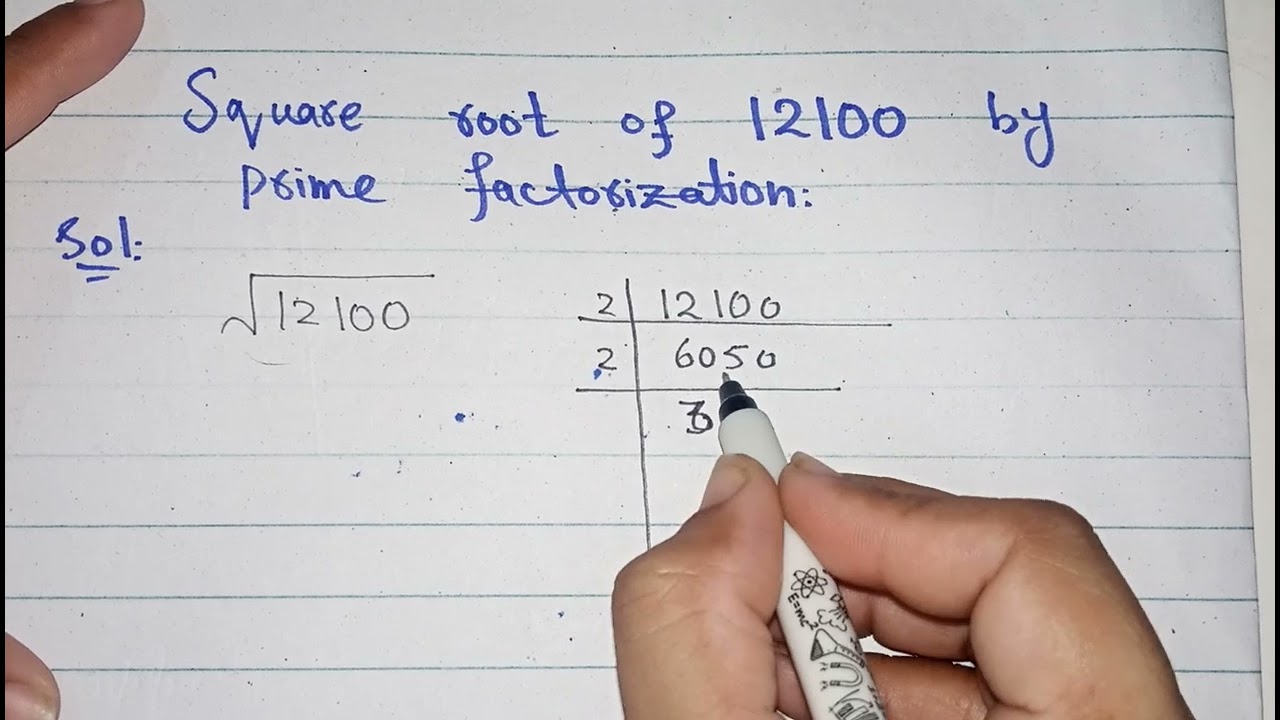 Square root of 12100 by
prime factorization:
Sol:
√12100
2 | 12100
2 | 6050
3
E=mc²